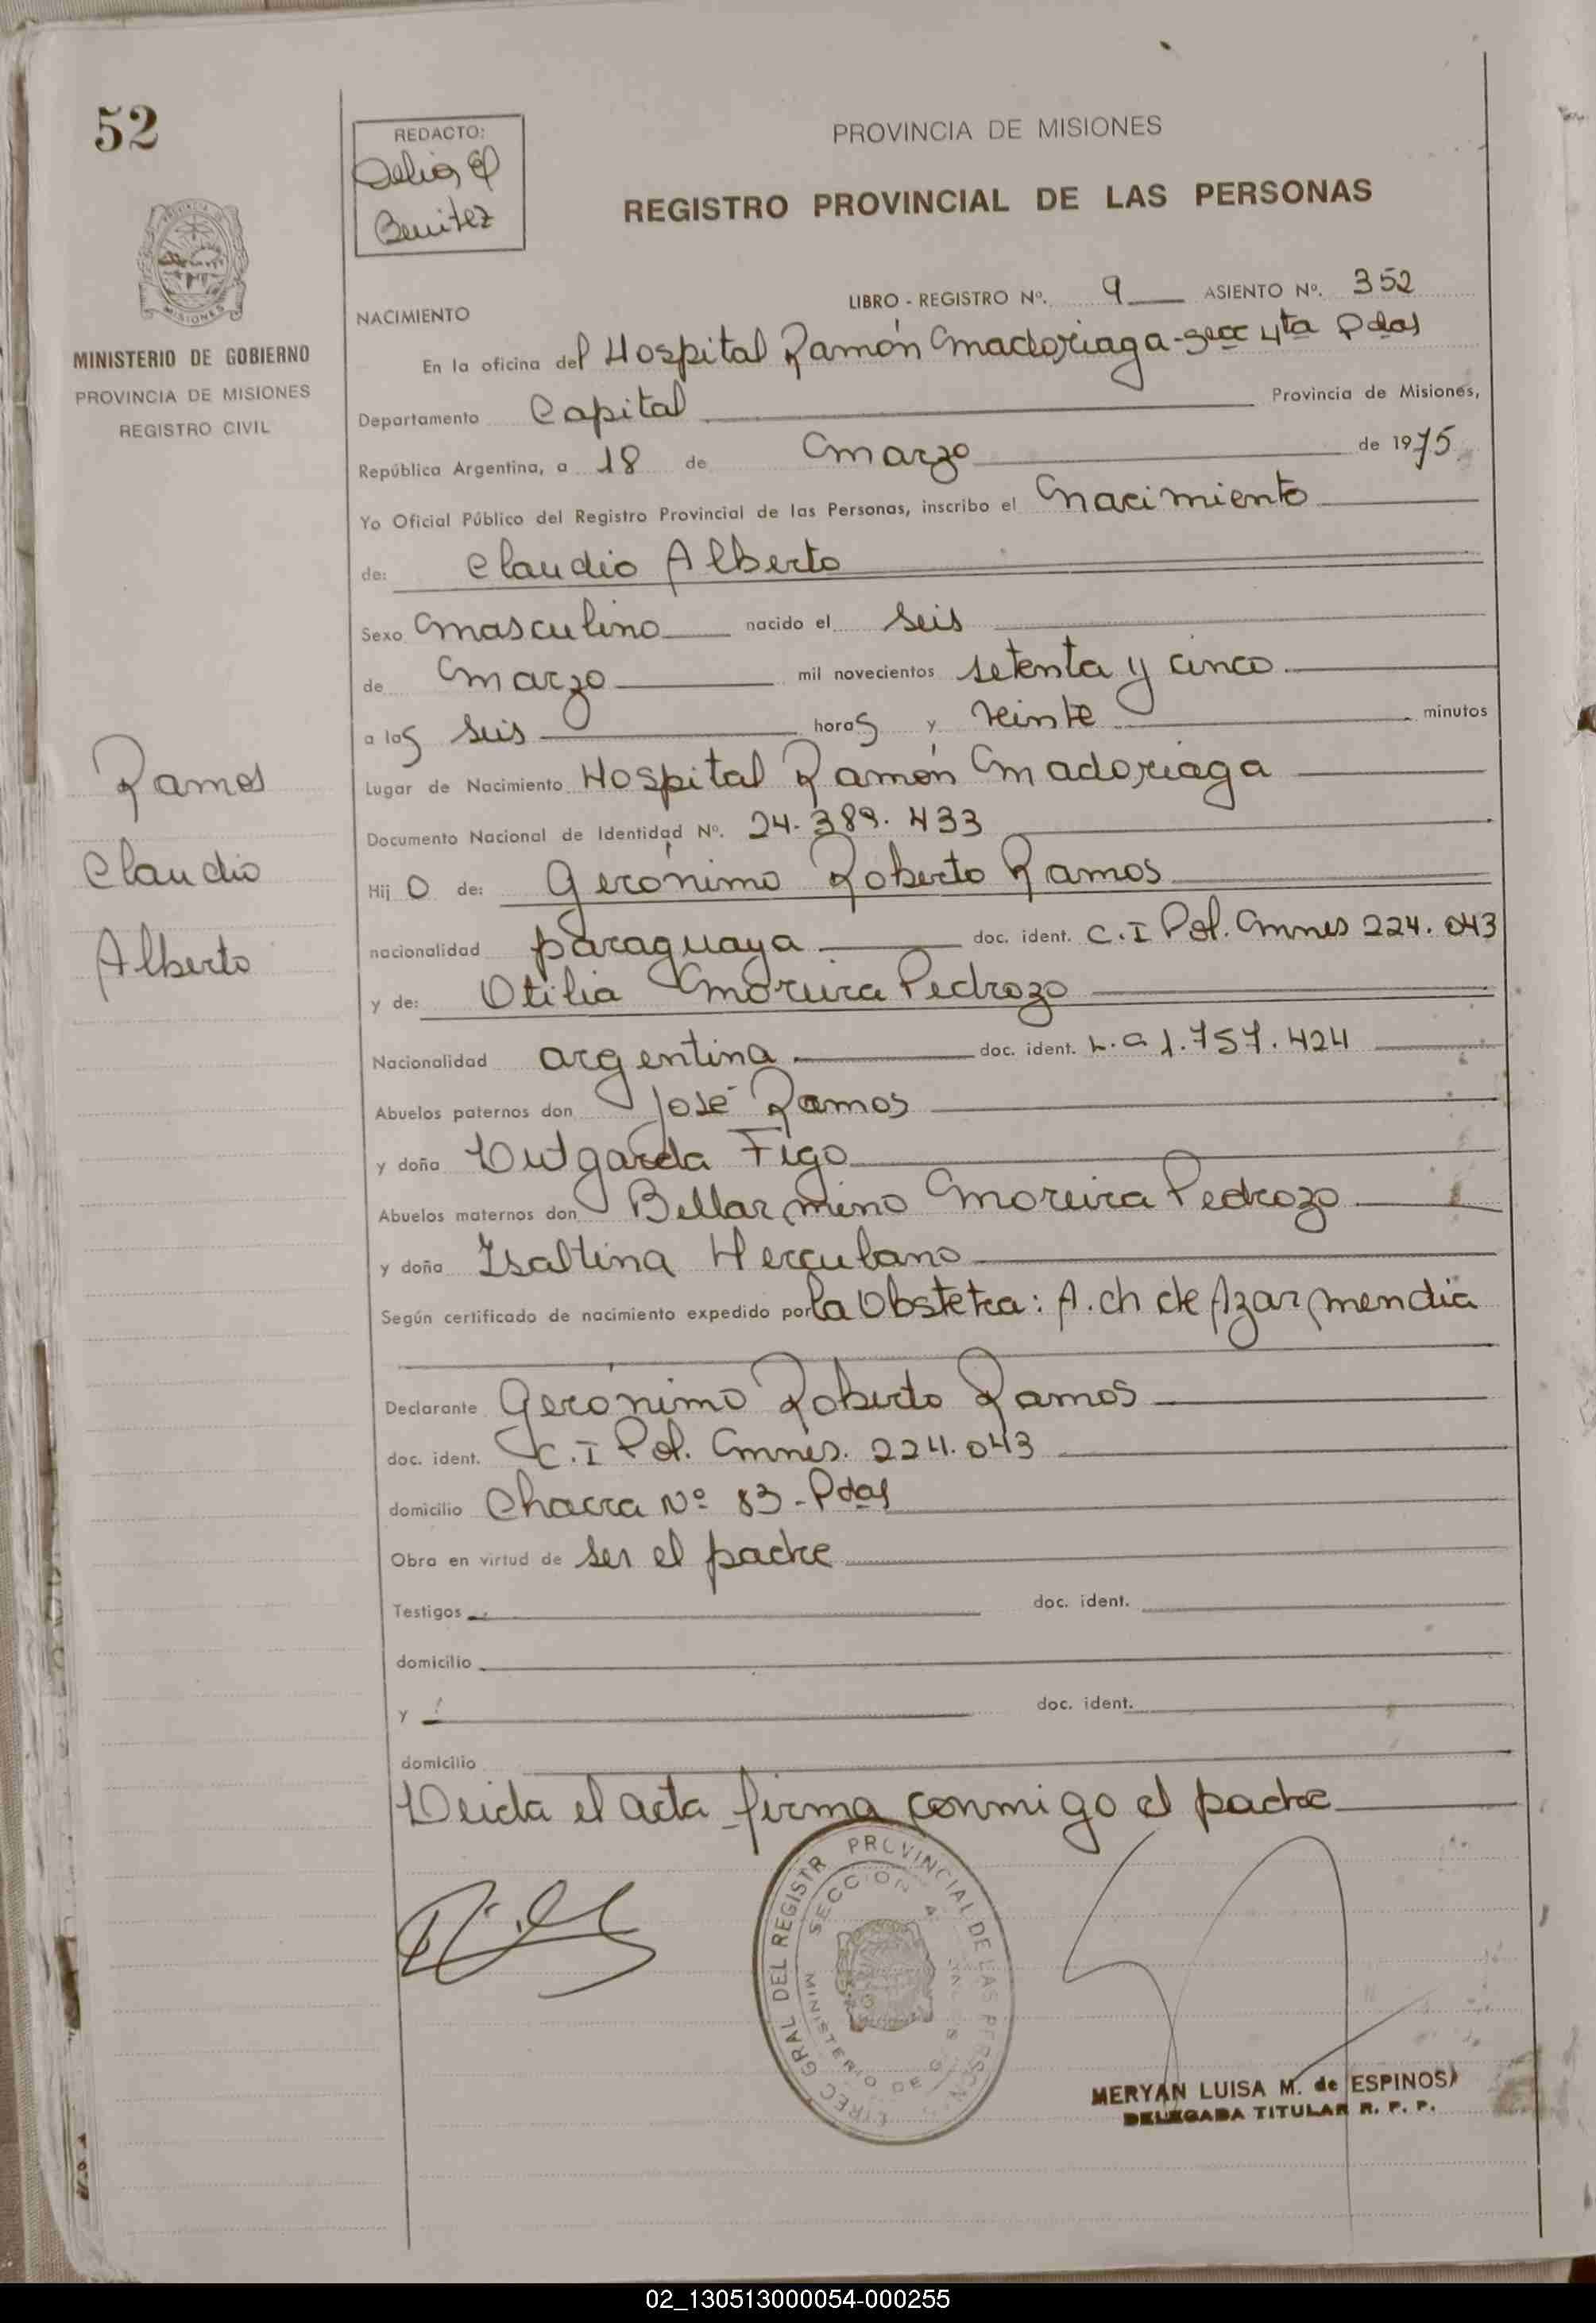 52
REDACTO:
Delia E
Benitez
PROVINCIA DE MISIONES
REGISTRO PROVINCIAL DE LAS PERSONAS
MINISTERIO DE GOBIERNO
PROVINCIA DE MISIONES
REGISTRO CIVIL
NACIMIENTO
LIBRO - REGISTRO Nº. 9 ASIENTO Nº. 352
En la oficina del Hospital Ramón Madoriaga - secc 4ta Pdas
Departamento Capital Provincia de Misiones,
República Argentina, a 18 de marzo de 1975
Yo Oficial Público del Registro Provincial de las Personas, inscribo el nacimiento
de: Claudio Alberto
Sexo masculino nacido el seis
de marzo mil novecientos setenta y cinco
a las seis horas y veinte minutos
Lugar de Nacimiento Hospital Ramón Madoriaga
Documento Nacional de Identidad Nº. 24.389.433
Hijo de: Gerónimo Roberto Ramos
nacionalidad paraguaya doc. ident. C.I Pol. Mnes 224.043
y de: Otilia Moreira Pedrozo
Nacionalidad argentina doc. ident. L.C 1.757.424
Abuelos paternos don José Ramos
y doña Lutgarda Figo
Abuelos maternos don Bellarmino Moreira Pedrozo
y doña Isaltina Herculano
Según certificado de nacimiento expedido por la Obstetra: A. ch de Azarmendia
Declarante Gerónimo Roberto Ramos
doc. ident. C.I Pol. Mnes. 224.043
domicilio Chacra Nº 83 - Pdas
Obra en virtud de ser el padre
Testigos doc. ident.
domicilio
y doc. ident.
domicilio
Leida el acta firma conmigo el padre
Ramos
Claudio
Alberto
DIREC GRAL DEL REGISTR PROVINCIAL DE LAS PERSON
SECCION 4
MINISTERIO DE G
MERYAN LUISA M. de ESPINOS
DELEGADA TITULAR R. P. P.
02_130513000054-000255